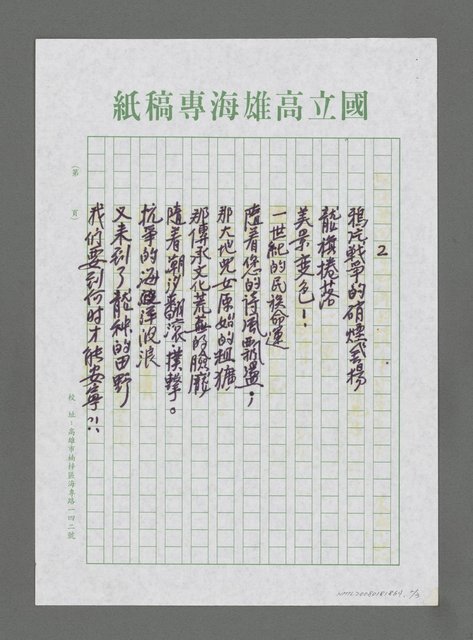 國立高雄海專稿紙
2
鴉片戰爭的硝煙飛揚
龍旗捲落
美景變色！
一世紀的民族命運
隨著您的詩風飄盪；
那大地兒女原始的粗獷
那傳承文化荒蕪的臉龐
隨著潮汐翻滾、撲擊。
抗爭的海洋波浪
又來到了龍神的田野
我們要到何时才能安寧?!
（第 頁）
校址：高雄市楠梓區海專路一四二號
NMTL20080181864
2/3